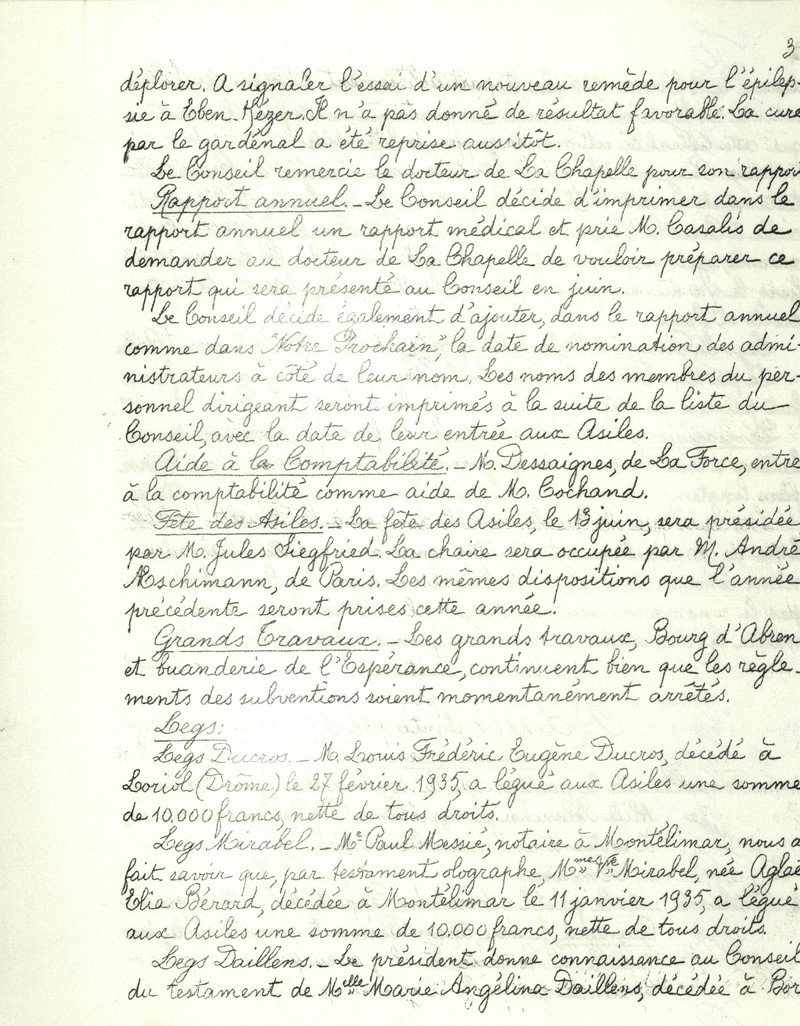 3
déplorer. A signaler l'essai d'un nouveau remède pour l'épilep-
sie à Eben-Hézer. Il n'a pas donné de résultat favorable. La cure
par le gardénal a été reprise aussitôt.
Le Conseil remercie le docteur de La Chapelle pour son rappor
Rapport annuel. - Le Conseil décide d'imprimer dans le
rapport annuel un rapport médical et prie M. Casalis de
demander au docteur de La Chapelle de vouloir préparer ce
rapport qui sera présenté au Conseil en juin.
Le Conseil décide également d'ajouter, dans le rapport annuel
comme dans "Notre Prochain", la date de nomination des admi-
nistrateurs à côté de leur nom. Les noms des membres du per-
sonnel dirigeant seront imprimés à la suite de la liste du
Conseil, avec la date de leur entrée aux Asiles.
Aide à la Comptabilité. - M. Dessaignes, de La Force, entre
à la comptabilité comme aide de M. Cochand.
Fête des Asiles. - La fête des Asiles, le 13 juin, sera présidée
par M. Jules Siegfried. La chaire sera occupée par M. André
Aeschimann, de Paris. Les mêmes dispositions que l'année
précédente seront prises cette année.
Grands Travaux. - Les grands travaux, Bourg d'Abren
et buanderie de l'Espérance, continuent bien que les règle-
ments des subventions soient momentanément arrêtés.
Legs:
Legs Ducros. - M. Louis Frédéric Eugène Ducros, décédé à
Loriol (Drôme) le 27 février 1935, a légué aux Asiles une somme
de 10.000 francs, nette de tous droits.
Legs Mirabel. - Me Paul Messié, notaire à Montélimar, nous a
fait savoir que, par testament olographe, Mme Vve Mirabel, née Aglaé
Elia Bérard, décédée à Montélimar le 11 janvier 1935, a légué
aux Asiles une somme de 10.000 francs, nette de tous droits.
Legs Daillens. - Le président donne connaissance au Conseil
du testament de Melle Marie Angélina Daillens, décédée à Bor